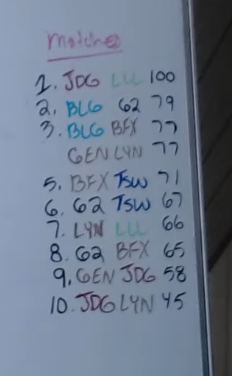 Matches
1. JDG LLL 100
2. BLG G2 79
3. BLG BFX 77
GEN LYN 77
5. BFX TSW 71
6. G2 TSW 67
7. LYN LLL 66
8. G2 BFX 65
9. GEN JDG 58
10. JDG LYN 45